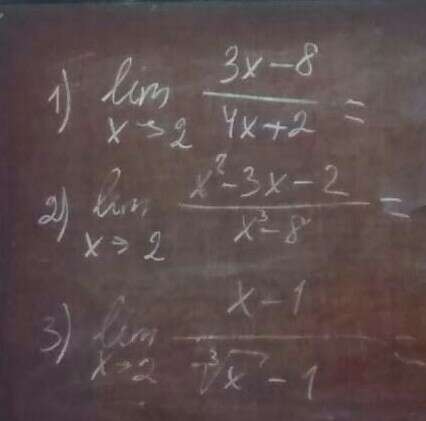 1) lim x→2 (3x-8)/(4x+2) =
2) lim x→2 (x²-3x-2)/(x³-8) =
3) lim x→2 (x-1)/(∛x-1) =